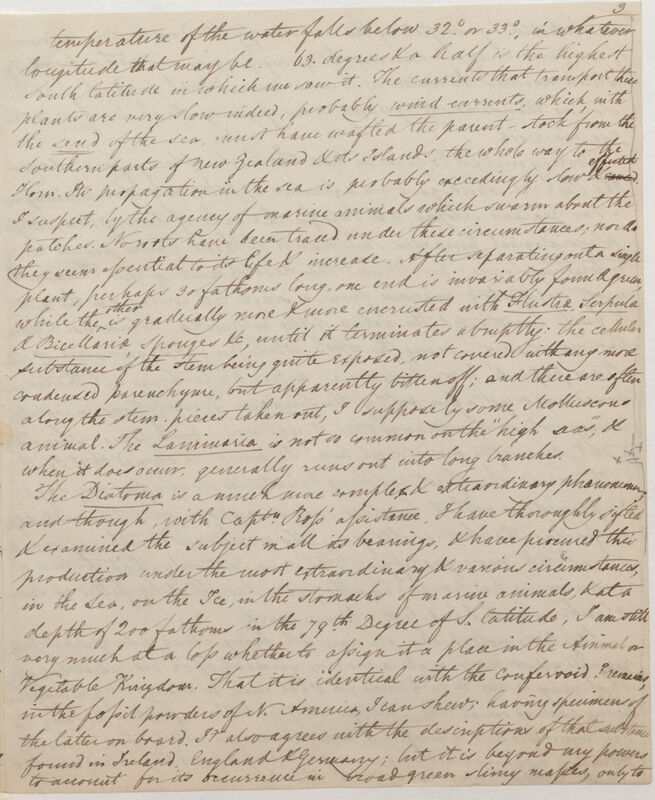 3
temperature of the water falls below 32.° or 33°, in whatever
longitude that may be. 63. degrees & a half is the highest
south latitude in which we saw it. The currents that transport these
plants are very slow indeed, probably wind currents, which, with
the send of the sea, must have wafted the parent-stock from the
southern parts of new Zealand & its Islands, the whole way to the
Horn. Its propagation in the sea is probably exceedingly slow & effected
I suspect, by the agency of marine animals which swarm about the
patches. No roots have been traced under these circumstances, nor do
they seem essential to its life & increase. After separating out a single
plant, perhaps 30 fathoms long, one end is invariably found green,
while the other is gradually more & more encrusted with Flustræ, Serpula
& Bicellariæ sponges &c, until it terminates abruptly: the cellular
substance of the stem being quite exposed, not covered with any more
condensed parenchyme, but apparently bitten off; and there are often
along the stem pieces taken out, I suppose by some Molluscous
animal. The Laminaria is not so common on the "high seas", &
when it does occur, generally runs out into long branches.
The Diatoma is a much more complex & extraordinary phænomenon,
and though, with Captn Ross' assistance, I have thoroughly sifted
& examined the subject in all its bearings, & have procured this
production under the most extraordinary & various circumstances,
in the sea, on the Ice, in the stomachs of marine animals, & at a
depth of 200 fathoms in the 79th Degree of S. latitude, I am still
very much at a loss whether to assign it a place in the Animal or
Vegetable Kingdom. That it is identical with the confervoid? remains,
in the fossil powders of N. America, I can shew; having specimens of
the latter on board. It also agrees with the descriptions of that substance
found in Ireland, England & Germany; but it is beyond my powers
to account for its occurrence in broad green slimy masses, only to